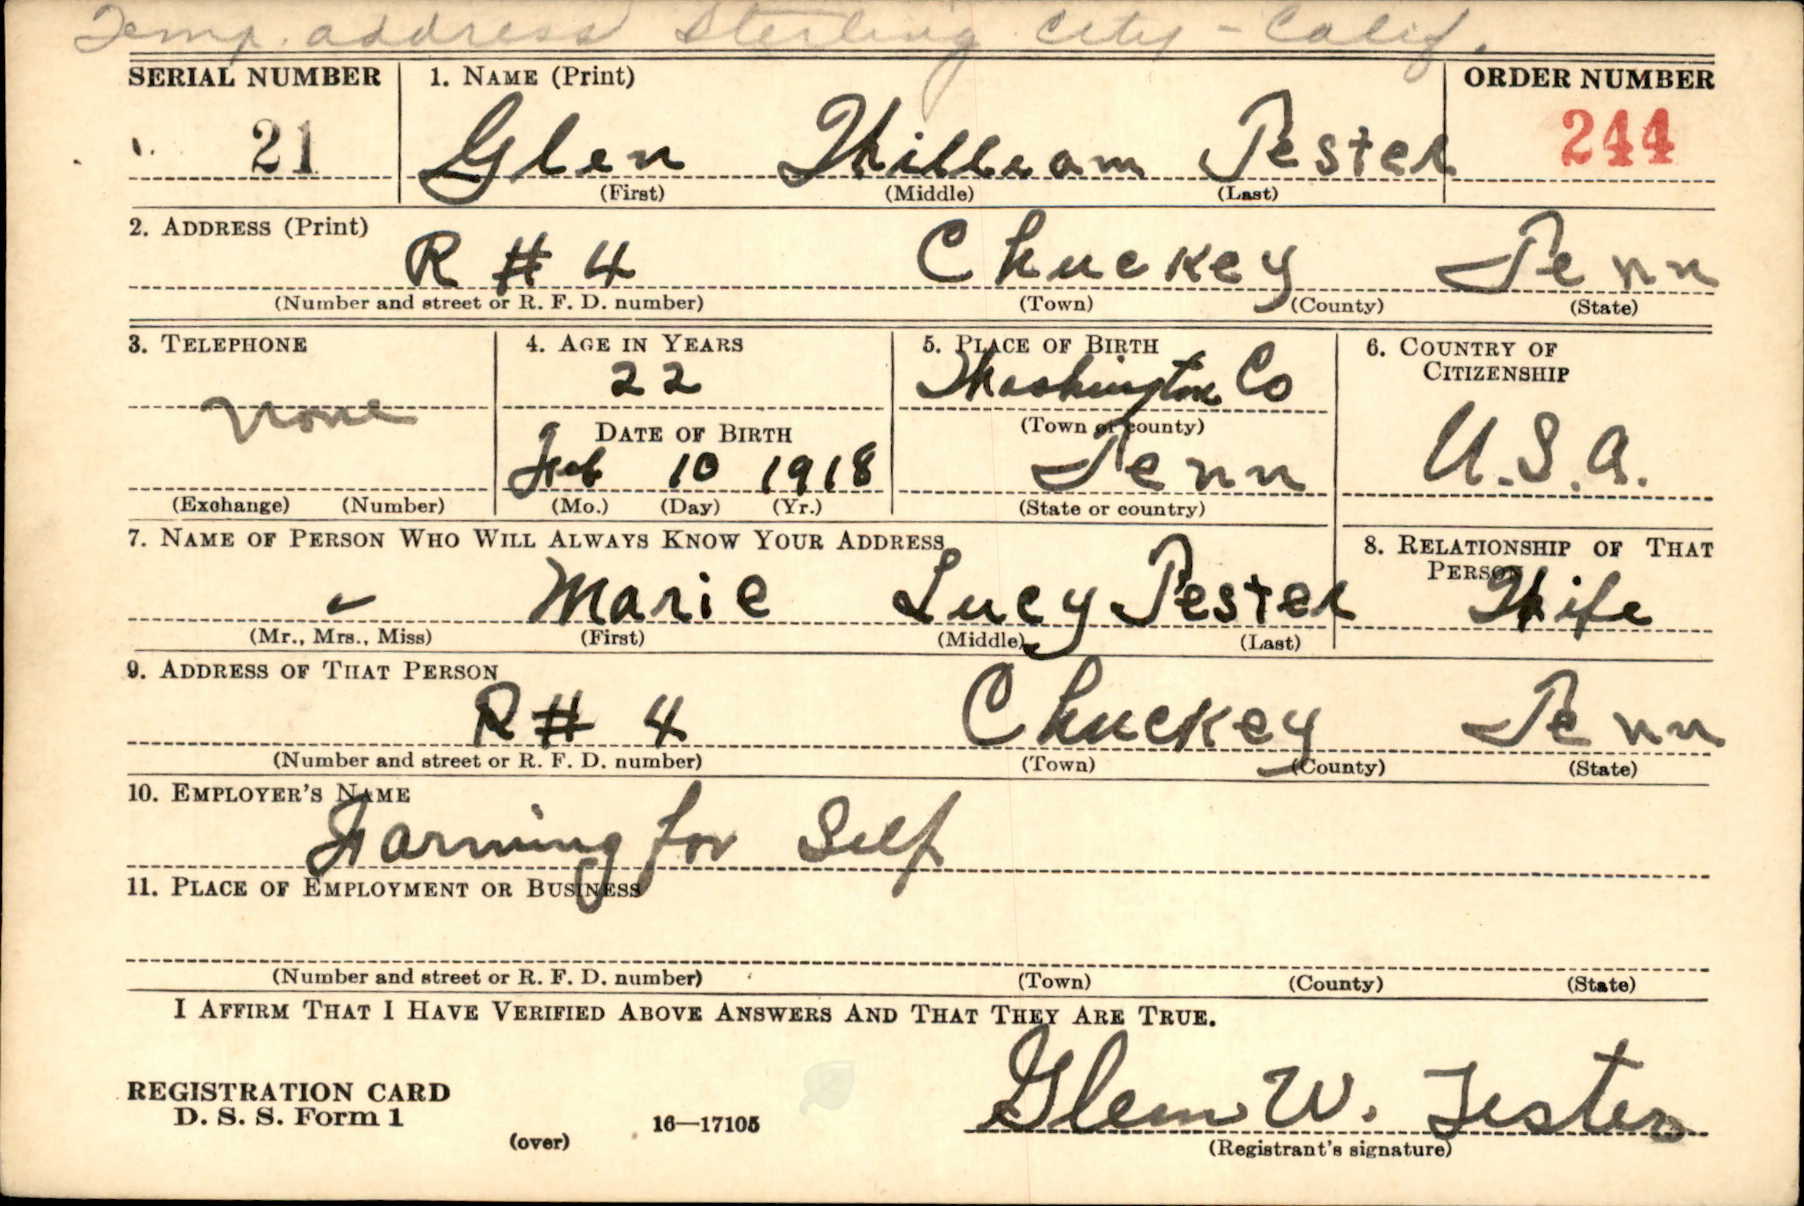 Temp. address Sterling City - Calif.
SERIAL NUMBER 1. NAME (Print) ORDER NUMBER
21 Glen William Tester 244
(First) (Middle) (Last)
2. ADDRESS (Print)
R # 4 Chuckey Tenn
(Number and street or R. F. D. number) (Town) (County) (State)
3. TELEPHONE 4. AGE IN YEARS 5. PLACE OF BIRTH 6. COUNTRY OF CITIZENSHIP
none 22 Washington Co
DATE OF BIRTH (Town or county) U.S.A.
Feb 10 1918 Tenn
(Exchange) (Number) (Mo.) (Day) (Yr.) (State or country)
7. NAME OF PERSON WHO WILL ALWAYS KNOW YOUR ADDRESS 8. RELATIONSHIP OF THAT PERSON
Marie Lucy Tester Wife
(Mr., Mrs., Miss) (First) (Middle) (Last)
9. ADDRESS OF THAT PERSON
R # 4 Chuckey Tenn
(Number and street or R. F. D. number) (Town) (County) (State)
10. EMPLOYER'S NAME
Farming for Self
11. PLACE OF EMPLOYMENT OR BUSINESS
(Number and street or R. F. D. number) (Town) (County) (State)
I AFFIRM THAT I HAVE VERIFIED ABOVE ANSWERS AND THAT THEY ARE TRUE.
REGISTRATION CARD
D. S. S. Form 1
(over) 16—17105 Glenn W. Tester
(Registrant's signature)